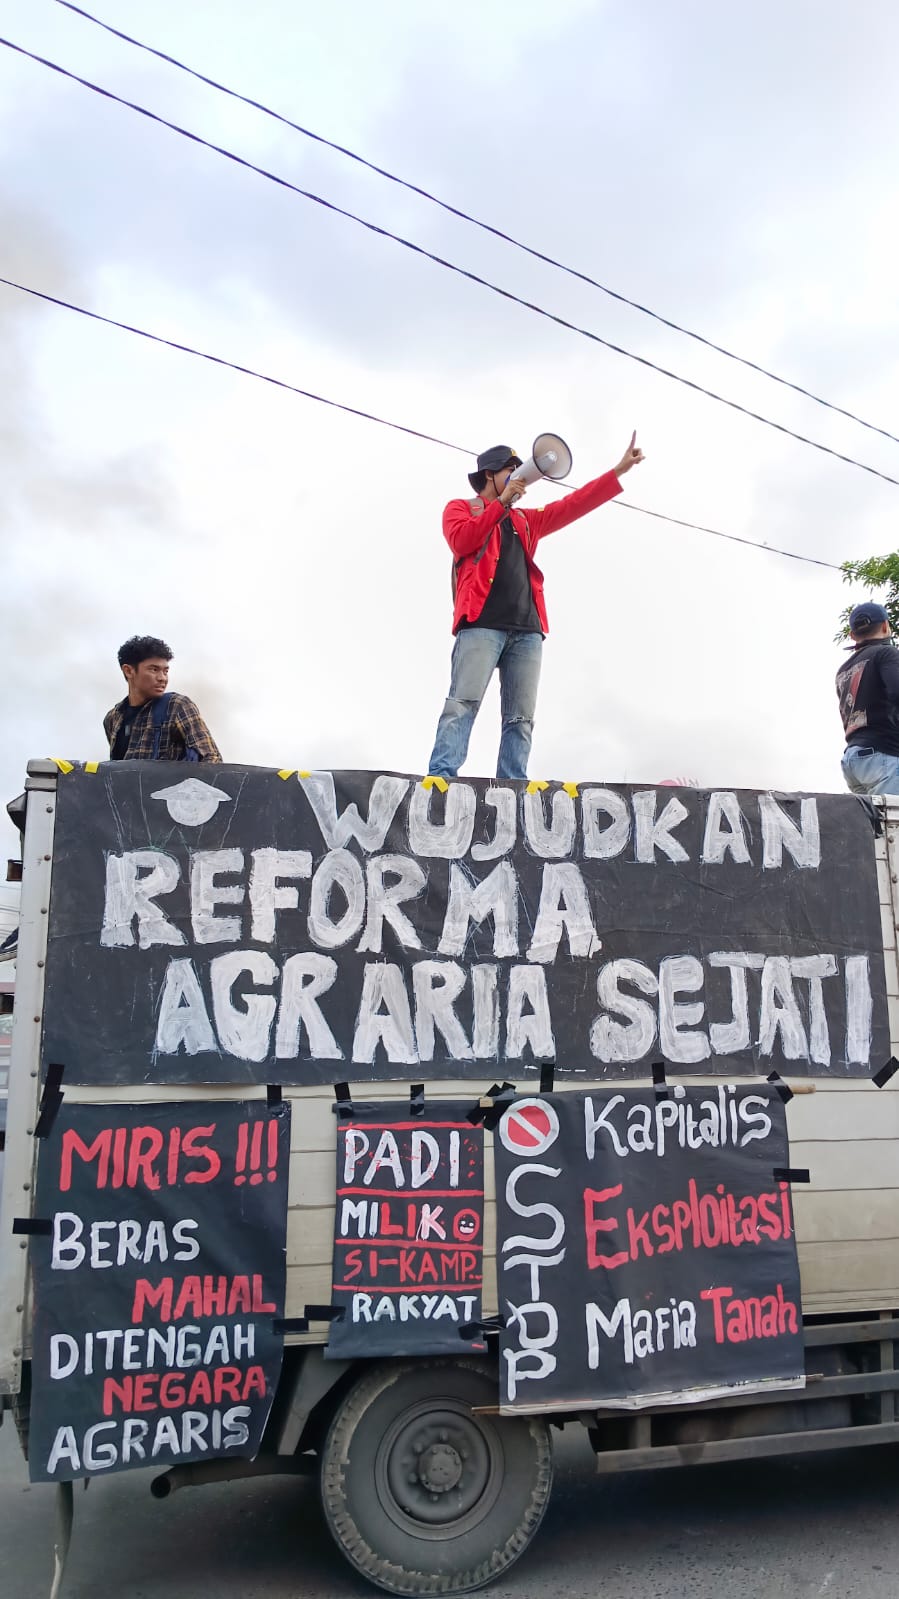 WUJUDKAN
REFORMA
AGRARIA SEJATI
MIRIS !!!
BERAS
MAHAL
DITENGAH
NEGARA
AGRARIS
PADI
MILIK
SI-KAMP..
RAKYAT
STOP
Kapitalis
Eksploitasi
Mafia Tanah